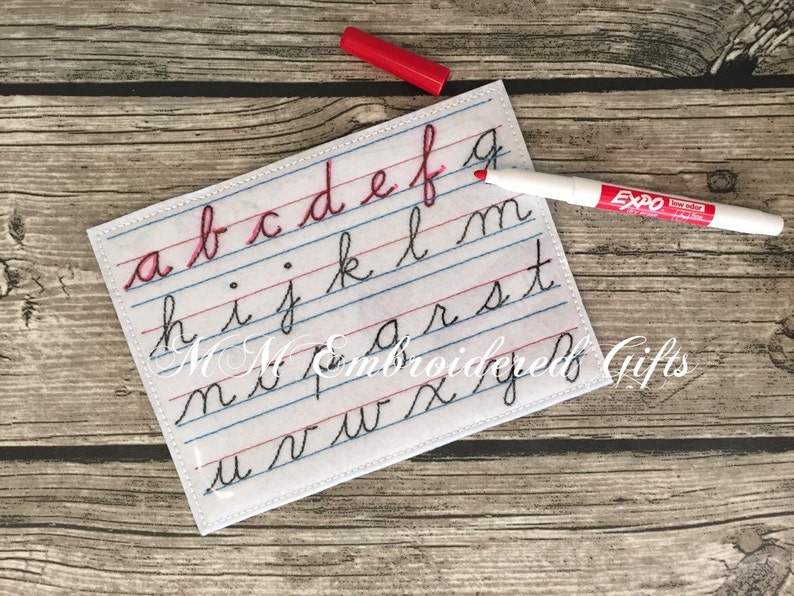 a b c d e f g
h i j k l m
n o p q r s t
u v w x y z
MM Embroidered Gifts
EXPO
low odor
fine